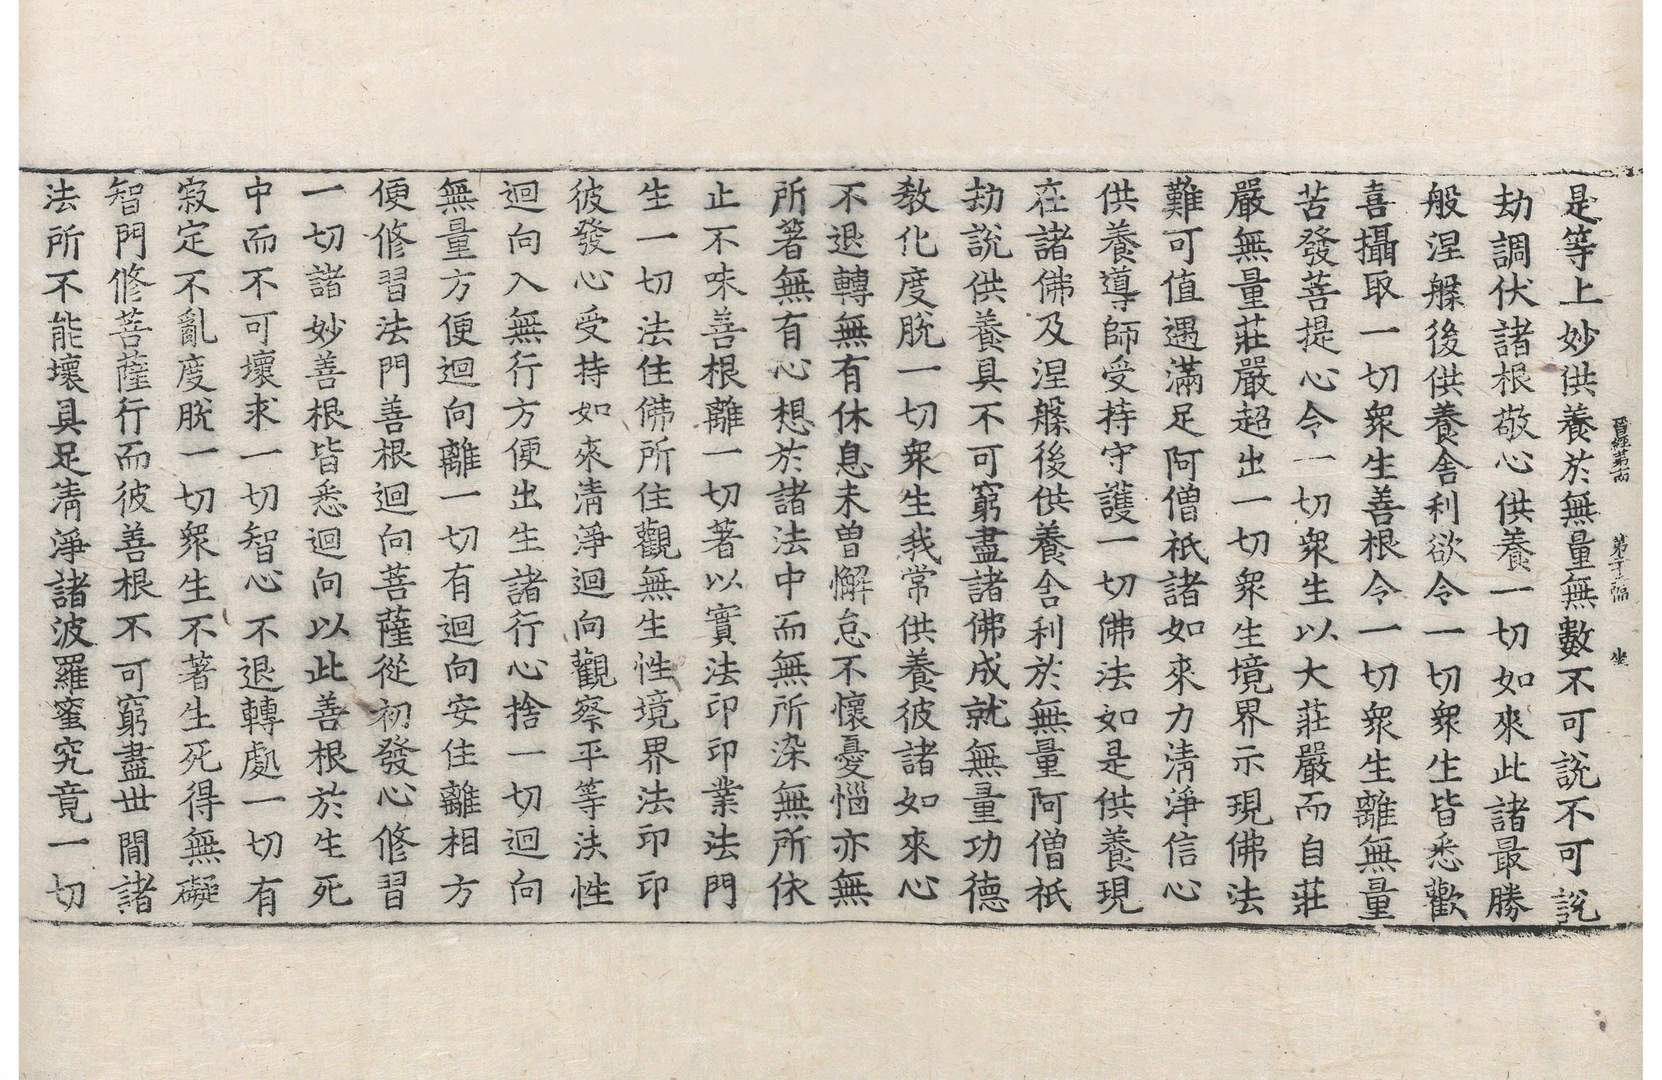 晉經第十四 第十二幅 坐
是等上妙供養於無量無數不可說不可說
劫調伏諸根敬心供養一切如來此諸最勝
般涅槃後供養舍利欲令一切衆生皆悉歡
喜攝取一切衆生善根令一切衆生離無量
苦發菩提心令一切衆生以大莊嚴而自莊
嚴無量莊嚴超出一切衆生境界示現佛法
難可值遇滿足阿僧祇諸如來力清淨信心
供養導師受持守護一切佛法如是供養現
在諸佛及涅槃後供養舍利於無量阿僧祇
劫說供養具不可窮盡諸佛成就無量功德
敎化度脫一切衆生我常供養彼諸如來心
不退轉無有休息未曾懈怠不懷憂惱亦無
所著無有心想於諸法中而無所染無所依
止不味善根離一切著以實法印印業法門
生一切法住佛所住觀無生性境界法印印
彼發心受持如來清淨迴向觀察平等法性
迴向入無行方便出生諸行心捨一切迴向
無量方便迴向離一切有迴向安住離相方
便修習法門善根迴向菩薩從初發心修習
一切諸妙善根皆悉迴向以此善根於生死
中而不可壞求一切智心不退轉處一切有
寂定不亂度脫一切衆生不著生死得無礙
智門修菩薩行而彼善根不可窮盡世間諸
法所不能壞具足清淨諸波羅蜜究竟一切